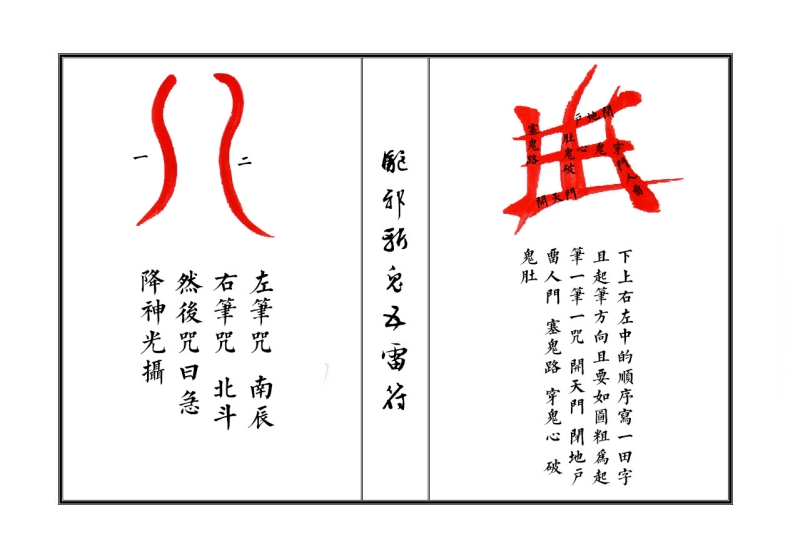 閉地戶
穿鬼心
畱人門
破鬼肚
塞鬼路
開天門
下上右左中的順序寫一田字
且起筆方向且要如圖粗爲起
筆一筆一咒 開天門 閉地戶
畱人門 塞鬼路 穿鬼心 破
鬼肚
驅邪斬鬼五雷符
一
二
左筆咒 南辰
右筆咒 北斗
然後咒曰急
降神光攝